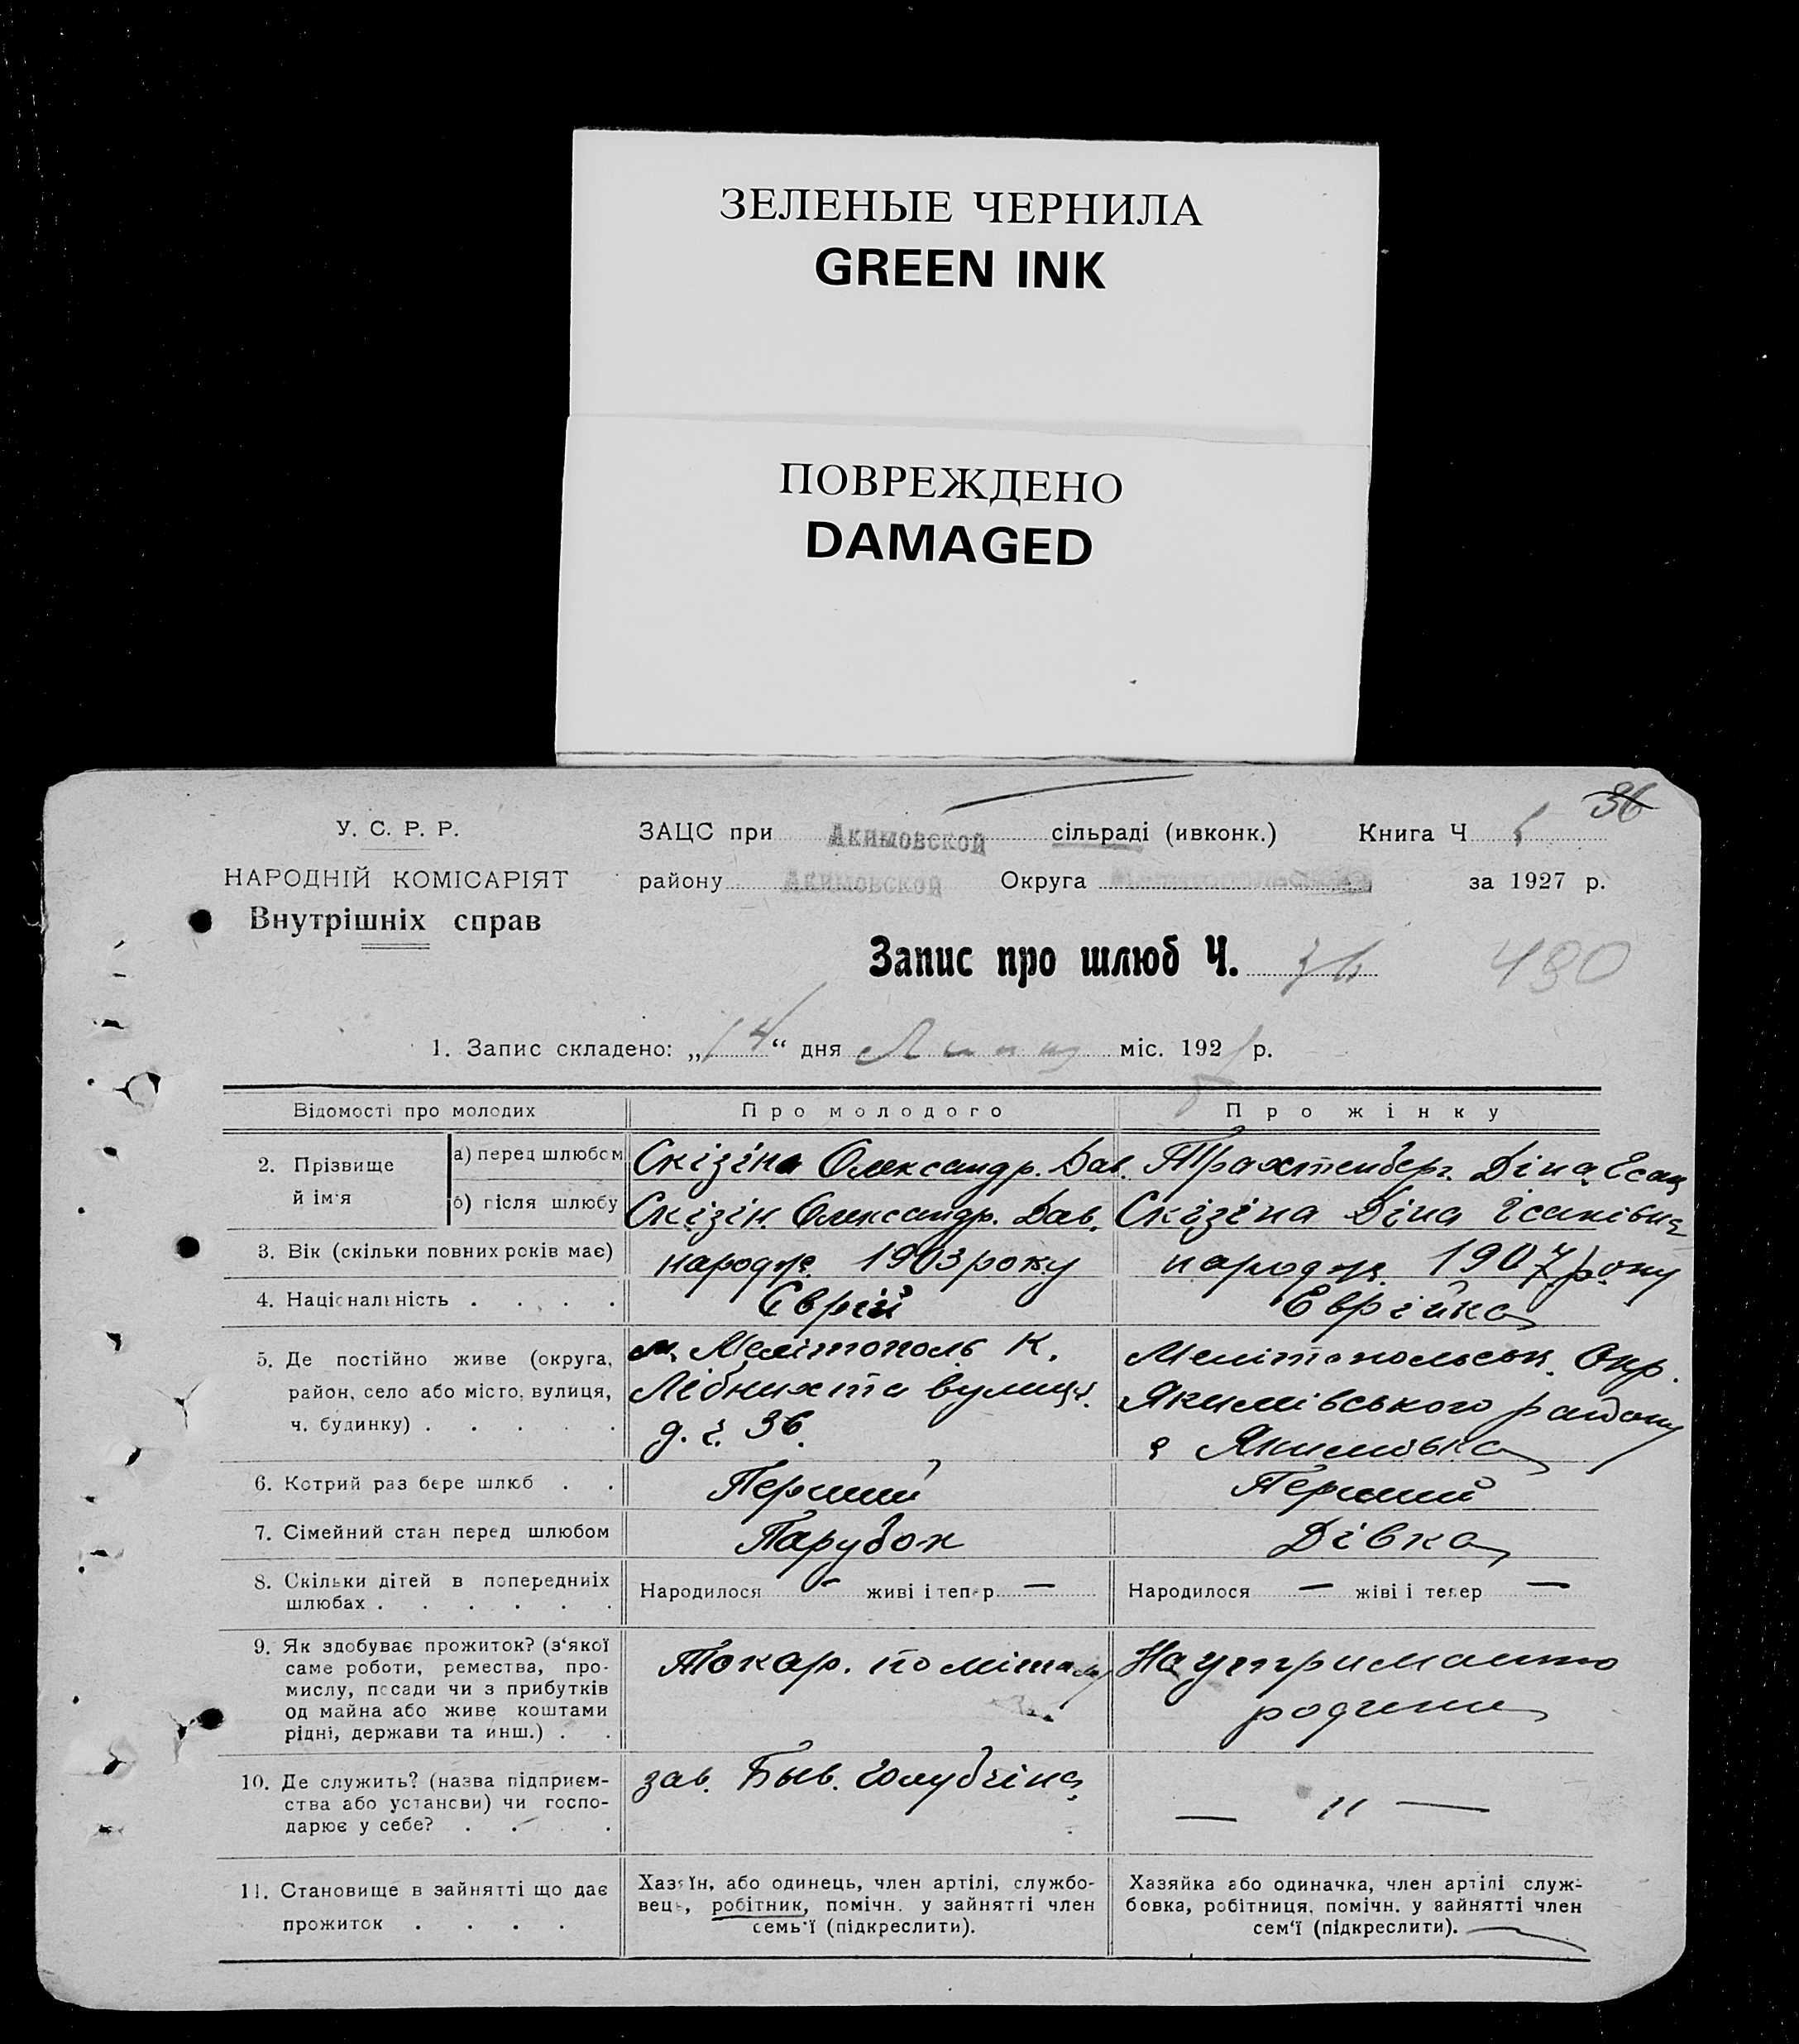 ЗЕЛЕНЫЕ ЧЕРНИЛА
GREEN INK
ПОВРЕЖДЕНО
DAMAGED
36
У. С. Р. Р.
НАРОДНІЙ КОМІСАРІЯТ
Внутрішніх справ
ЗАЦС при Акимовской сільраді (ивконк.) Книга Ч
району Акимовской Округа за 1927 р.
Запис про шлюб Ч. 36 480
1. Запис складено: „14“ дня Липня міс. 192 р.
Відомості про молодих Про молодого Про жінку
2. Прізвище й ім'я
а) перед шлюбом Скізіна Олександр. Дав. Трахтенберг. Діна Ісак
б) після шлюбу Скізін Олександр. Дав. Скізіна Діна Ісаківна
3. Вік (скільки повних років має) народж. 1903 року народж. 1907 року
4. Національність . . . . Єврій Еврійка
5. Де постійно живе (округа, район, село або місто, вулиця, ч. будинку) . . . . .
м. Мелітополь К.
Лібкнихта вулиця
д. ч. 36.
Мелітопольськ. Окр.
Якимівського району
с Якимовка
6. Котрий раз бере шлюб . . Перший Перший
7. Сімейний стан перед шлюбом Парубок Дівка
8. Скільки дітей в попередниіх шлюбах . . . . . .
Народилося — живі і тепер — Народилося — жіві і тепер —
9. Як здобуває прожиток? (з‘якої
саме роботи, ремества, про-
мислу, посади чи з прибутків
од майна або живе коштами
рідні, держави та инш.) . .
Токар. по міталу
На утриманню
родини
10. Де служить? (назва підприєм-
ства або установи) чи госпо-
дарює у себе? . . .
зав. Быв. Голубчіна
— " —
11. Становище в зайнятті що дає
прожиток . . . .
Хазяїн, або одинець, член артілі, службо-
вець, робітник, помічн. у зайнятті член
семь'ї (підкреслити).
Хазяйка або одиначка, член артілі служ-
бовка, робітниця, помічн. у зайнятті член
сем‘ї (підкреслити).